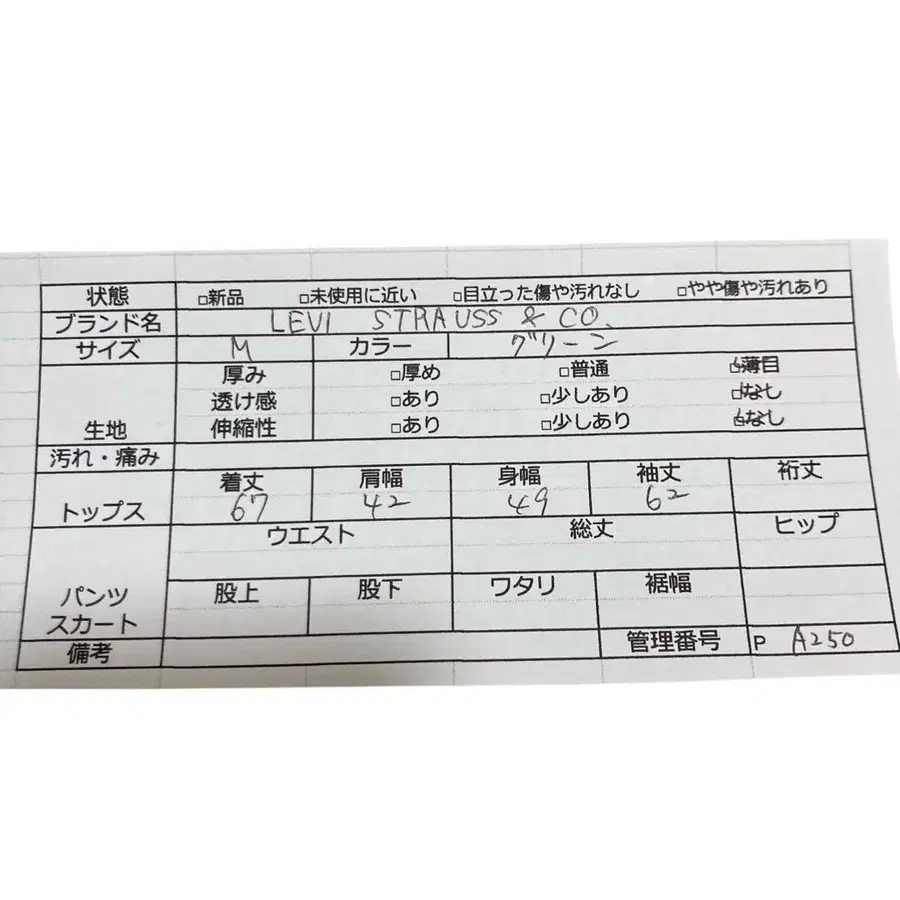 状態 □新品 □未使用に近い □目立った傷や汚れなし □やや傷や汚れあり
ブランド名 LEVI STRAUSS & CO.
サイズ M カラー グリーン
厚み □厚め □普通 □薄目
透け感 □あり □少しあり □なし
生地 伸縮性 □あり □少しあり □なし
汚れ・痛み
着丈 肩幅 身幅 袖丈 裄丈
トップス 67 42 49 62
ウエスト 総丈 ヒップ
股上 股下 ワタリ 裾幅
パンツ
スカート
備考 管理番号 P A250